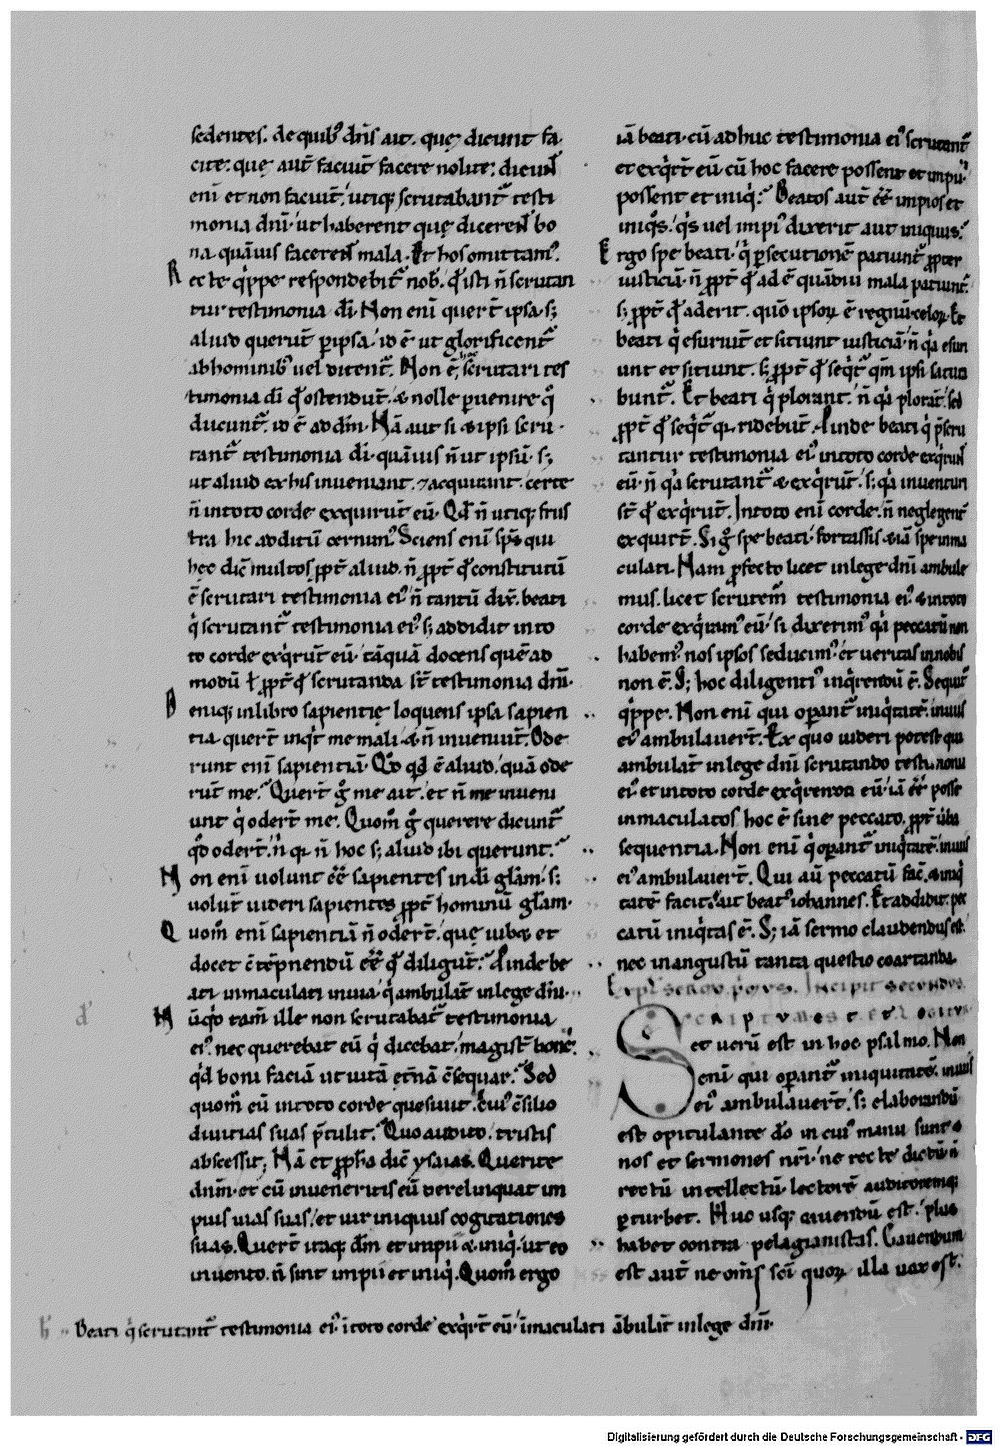 sedentes. de quib9 dñs ait. quę dicunt fa
cite. quę aut̃ faciunt̃ facere nolite. dicunt
eni et non faciunt̃. utiq; scrutabant̃ testi
monia dñi. ut haberent quę dicerent bo
na. quãuis facerent mala. Et hos omittam9.
Recte q̃ppe respondebit̃ nob. qđ isti ñ scrutan
tur testimonia di. Non eni quer̃t ipsa. s;
aliud querũt p ipsa. id ẽ ut glorificent̃
ab hominib9 uel ditent̃. Non ẽ hoc scrutari tes
timonia di qđ ostendũt. & nolle peruenire q̊
ducunt̃. id ẽ ad dñm. Nã aut si & ipsi scru
tant̃ testimonia di. quãuis ñ ut ipsũ. s;
ut aliud ex his inueniant. 7 acquirant. certe
ñ in toto corde exquirũt eũ. Qđ ñ utiq; frus
tra hic additũ cernim9. Sciens eni sp̃s qui
hęc dic̃ multos ppt̃ aliud. ñ ppt̃ qđ constitutũ
ẽ scrutari testimonia ei9. ñ tantũ dix̃. beati
q̃ scrutant̃ testimonia ei9. s; addidit in to
to corde exq̃rũt eũ. tãquã docens quẽ ad
modũ ł ppt̃ qđ scrutanda st̃ testimonia dñi.
Deniq; in libro sapientię loquens ipsa sapien
tia. quer̃t inq̃t me mali. & ñ inueniũt. Ode
runt eni sapientiã. Qđ qđ ẽ aliud. quã ode
rũt me. Quer̃t g̊ me ait. et ñ me inueni
unt q̃ oder̃t me. Quom̃ g̊ querere dicunt̃
qđ oder̃t. ñ q̃ ñ hoc s; aliud ibi querunt.
Non eni uolunt eẽ sapientes in di gl̃am. s;
uolũt uideri sapientes ppt̃ hominũ gl̃am.
Quom̃ eni sapientiã ñ oder̃t. quę iubet et
docet c̃tẽpnendũ eẽ qđ diligũt. Proinde be
ati inmaculati in uia. q̃ ambulãt in lege dñi.
Nũq̊d tam̃ ille non scrutabat̃ testimonia
ei9. nec querebat eũ q̃ dicebat. magist̃ bone.
q̊d boni faciã ut uitã et̃nã c̃sequar. Sed
quom̃ eũ in toto corde quesiuit. cui9 c̃silio
diuitias suas p̃tulit. Quo audito. tristis
abscessit; Nã et ppha dic̃ ysaias. Querite
dñm. et cũ inueneritis eũ derelinquat im
pius uias suas. et uir iniquus cogitationes
suas. Quer̃t itaq; dñm et impii & iniq̃. ut eo
inuento. ñ sint impii et iniq̃. Quom̃ ergo
iã beati. cũ adhuc testimonia ei9 scrutant̃
et exq̃r̃t eũ. cũ hoc facere possent et impii.
possent et iniq̃. Beatos aut̃ eẽ impios et
iniq̊s. q̊s uel impi9 dixerit aut iniquus.
Ergo spe beati. q̃ psecutionẽ patiunt̃ ppter
iusticiã. ñ ppt̃ qđ adẽ quãdiu mala patiunt̃.
s; ppt̃ qđ aderit. quõ ipsoꝝ ẽ regnũ celoꝝ. Et
beati q̃ esuriũt et sitiunt iusticiã. ñ q̃a esuri
unt et sitiunt. s; ppt̃ qđ seq̃t̃ qm̃ ipsi satura
bunt̃. Et beati q̃ plorant. ñ q̃a plorãt. sed
ppt̃ qđ seq̃t̃ q̃ ridebũt. Proinde beati q̃ pscru
tantur testimonia ei9 in toto corde exq̃runt
eũ. ñ q̃a scrutant̃ & exq̃rũt. s; q̃a inuenturi
st̃ qđ exq̃rũt. In toto eni corde. ñ neglegent̃
exquir̃t. Si g̊ spe beati. fortassis & iã spe inma
culati. Nam pfecto licet in lege dñi ambule
mus. licet scrutem̃ testimonia ei9 & in toto
corde exq̃ram9 eũ. si dixerim9 q̃a peccatũ non
habem9. nos ipsos seducim9. et ueritas in nobis
non ẽ. S; hoc diligenti9 inq̃rendũ ẽ. Sequit̃
q̃ppe. Non eni qui opant̃ iniq̃tatẽ. in uiis
ei9 ambulauer̃t. Ex quo uideri potest qui
ambulãt in lege dñi scrutando testimonia
ei9 et in toto corde exq̃rendo eũ. iã eẽ posse
inmaculatos. hoc ẽ sine peccato. ppt̃ ũba
sequentia. Non eni q̃ opant̃ iniq̃tatẽ. in uiis
ei9 ambulauer̃t. Qui aũ peccatũ fac̃. & iniq̃
tatẽ facit. ait beat9 iohannes. Et addidit. pec
catũ iniq̃tas ẽ. S; iã sermo claudendus est.
nec in angustũ tanta questio coartanda.
Expl̃ sermo p̃mus. Incipit secundus
Set uerũ est in hoc psalmo. Non
eni qui opant̃ iniquitatẽ. in uiis
ei9 ambulauer̃t. s; elaborandũ
est opitulante do in cui9 manu sunt &
nos et sermones nr̃i. ne recte dictũ ñ
rectũ intellectũ. lectorẽ auditoremq;
pturbet. Huc usq; cauendũ est. plus
habet contra pelagianistas. Cauendum
est aut̃ ne om̃s sci quoꝝ illa uox est.
Beati q̃ scrutant̃ testimonia ei9. ĩ toto corde exq̃r̃t eũ. ĩmaculati ãbulãt in lege dñi.
Digitalisierung gefördert durch die Deutsche Forschungsgemeinschaft - DFG